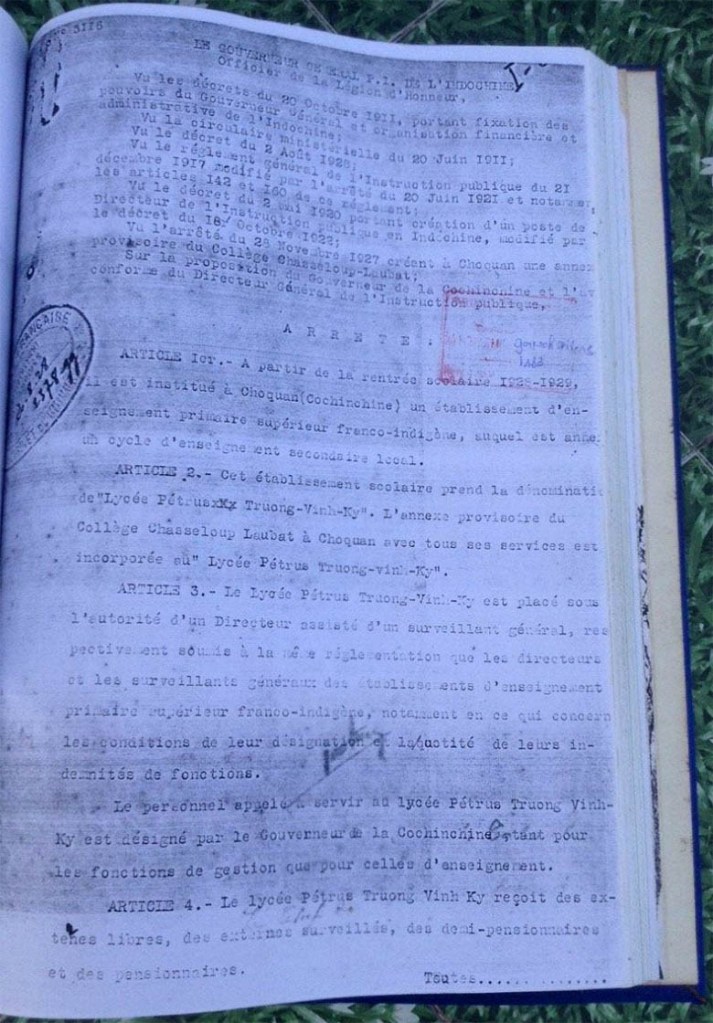 3116
LE GOUVERNEUR GENERAL P.I. DE L'INDOCHINE
Officier de la Légion d'Honneur,
Vu les décrets du 20 Octobre 1911, portant fixation des
pouvoirs du Gouverneur Général et organisation financière et
administrative de l'Indochine;
Vu la circulaire ministérielle du 20 Juin 1911;
Vu le décret du 2 Août 1928;
Vu le réglement général de l'Instruction publique du 21
décembre 1917 modifié par l'arrêté du 20 Juin 1921 et notammen
les articles 142 et 160 de ce réglement;
Vu le décret du 2 mai 1920 portant création d'un poste de
Directeur de l'Instruction publique en Indochine, modifié par
le décret du 18 Octobre 1922;
Vu l'arrêté du 28 Novembre 1927 créant à Choquan une annex
provisoire du Collège Chasseloup-Laubat;
Sur la proposition du Gouverneur de la Cochinchine et l'av
conforme du Directeur Général de l'Instruction publique,
A R R E T E :
ARTICLE Ier.- A partir de la rentrée scolaire 1928-1929,
il est institué à Choquan(Cochinchine) un établissement d'en-
seignement primaire supérieur franco-indigène, auquel est anne
un cycle d'enseignement secondaire local.
ARTICLE 2.- Cet établissement scolaire prend la dénominatio
de"Lycée Pétrusxxx Truong-Vinh-Ky". L'annexe provisoire du
Collège Chasseloup Laubat à Choquan avec tous ses services est
incorporée au" Lycée Pétrus Truong-vinh-Ky".
ARTICLE 3.- Le Lycée Pétrus Truong-Vinh-Ky est placé sous
l'autorité d'un Directeur assisté d'un surveillant général, res
pectivement soumis à la même réglementation que les directeurs
et les surveillants généraux des établissements d'enseignement
primaire supérieur franco-indigène, notamment en ce qui concern
les conditions de leur désignation et la quotité de leurs in-
demnités de fonctions.
Le personnel appelé à servir au lycée Pétrus Truong Vinh-
Ky est désigné par le Gouverneur de la Cochinchine, tant pour
les fonctions de gestion que pour celles d'enseignement.
ARTICLE 4.- Le lycée Pétrus Truong Vinh Ky reçoit des ex-
ternes libres, des externes surveillés, des demi-pensionnaires
et des pensionnaires.
Toutes..............